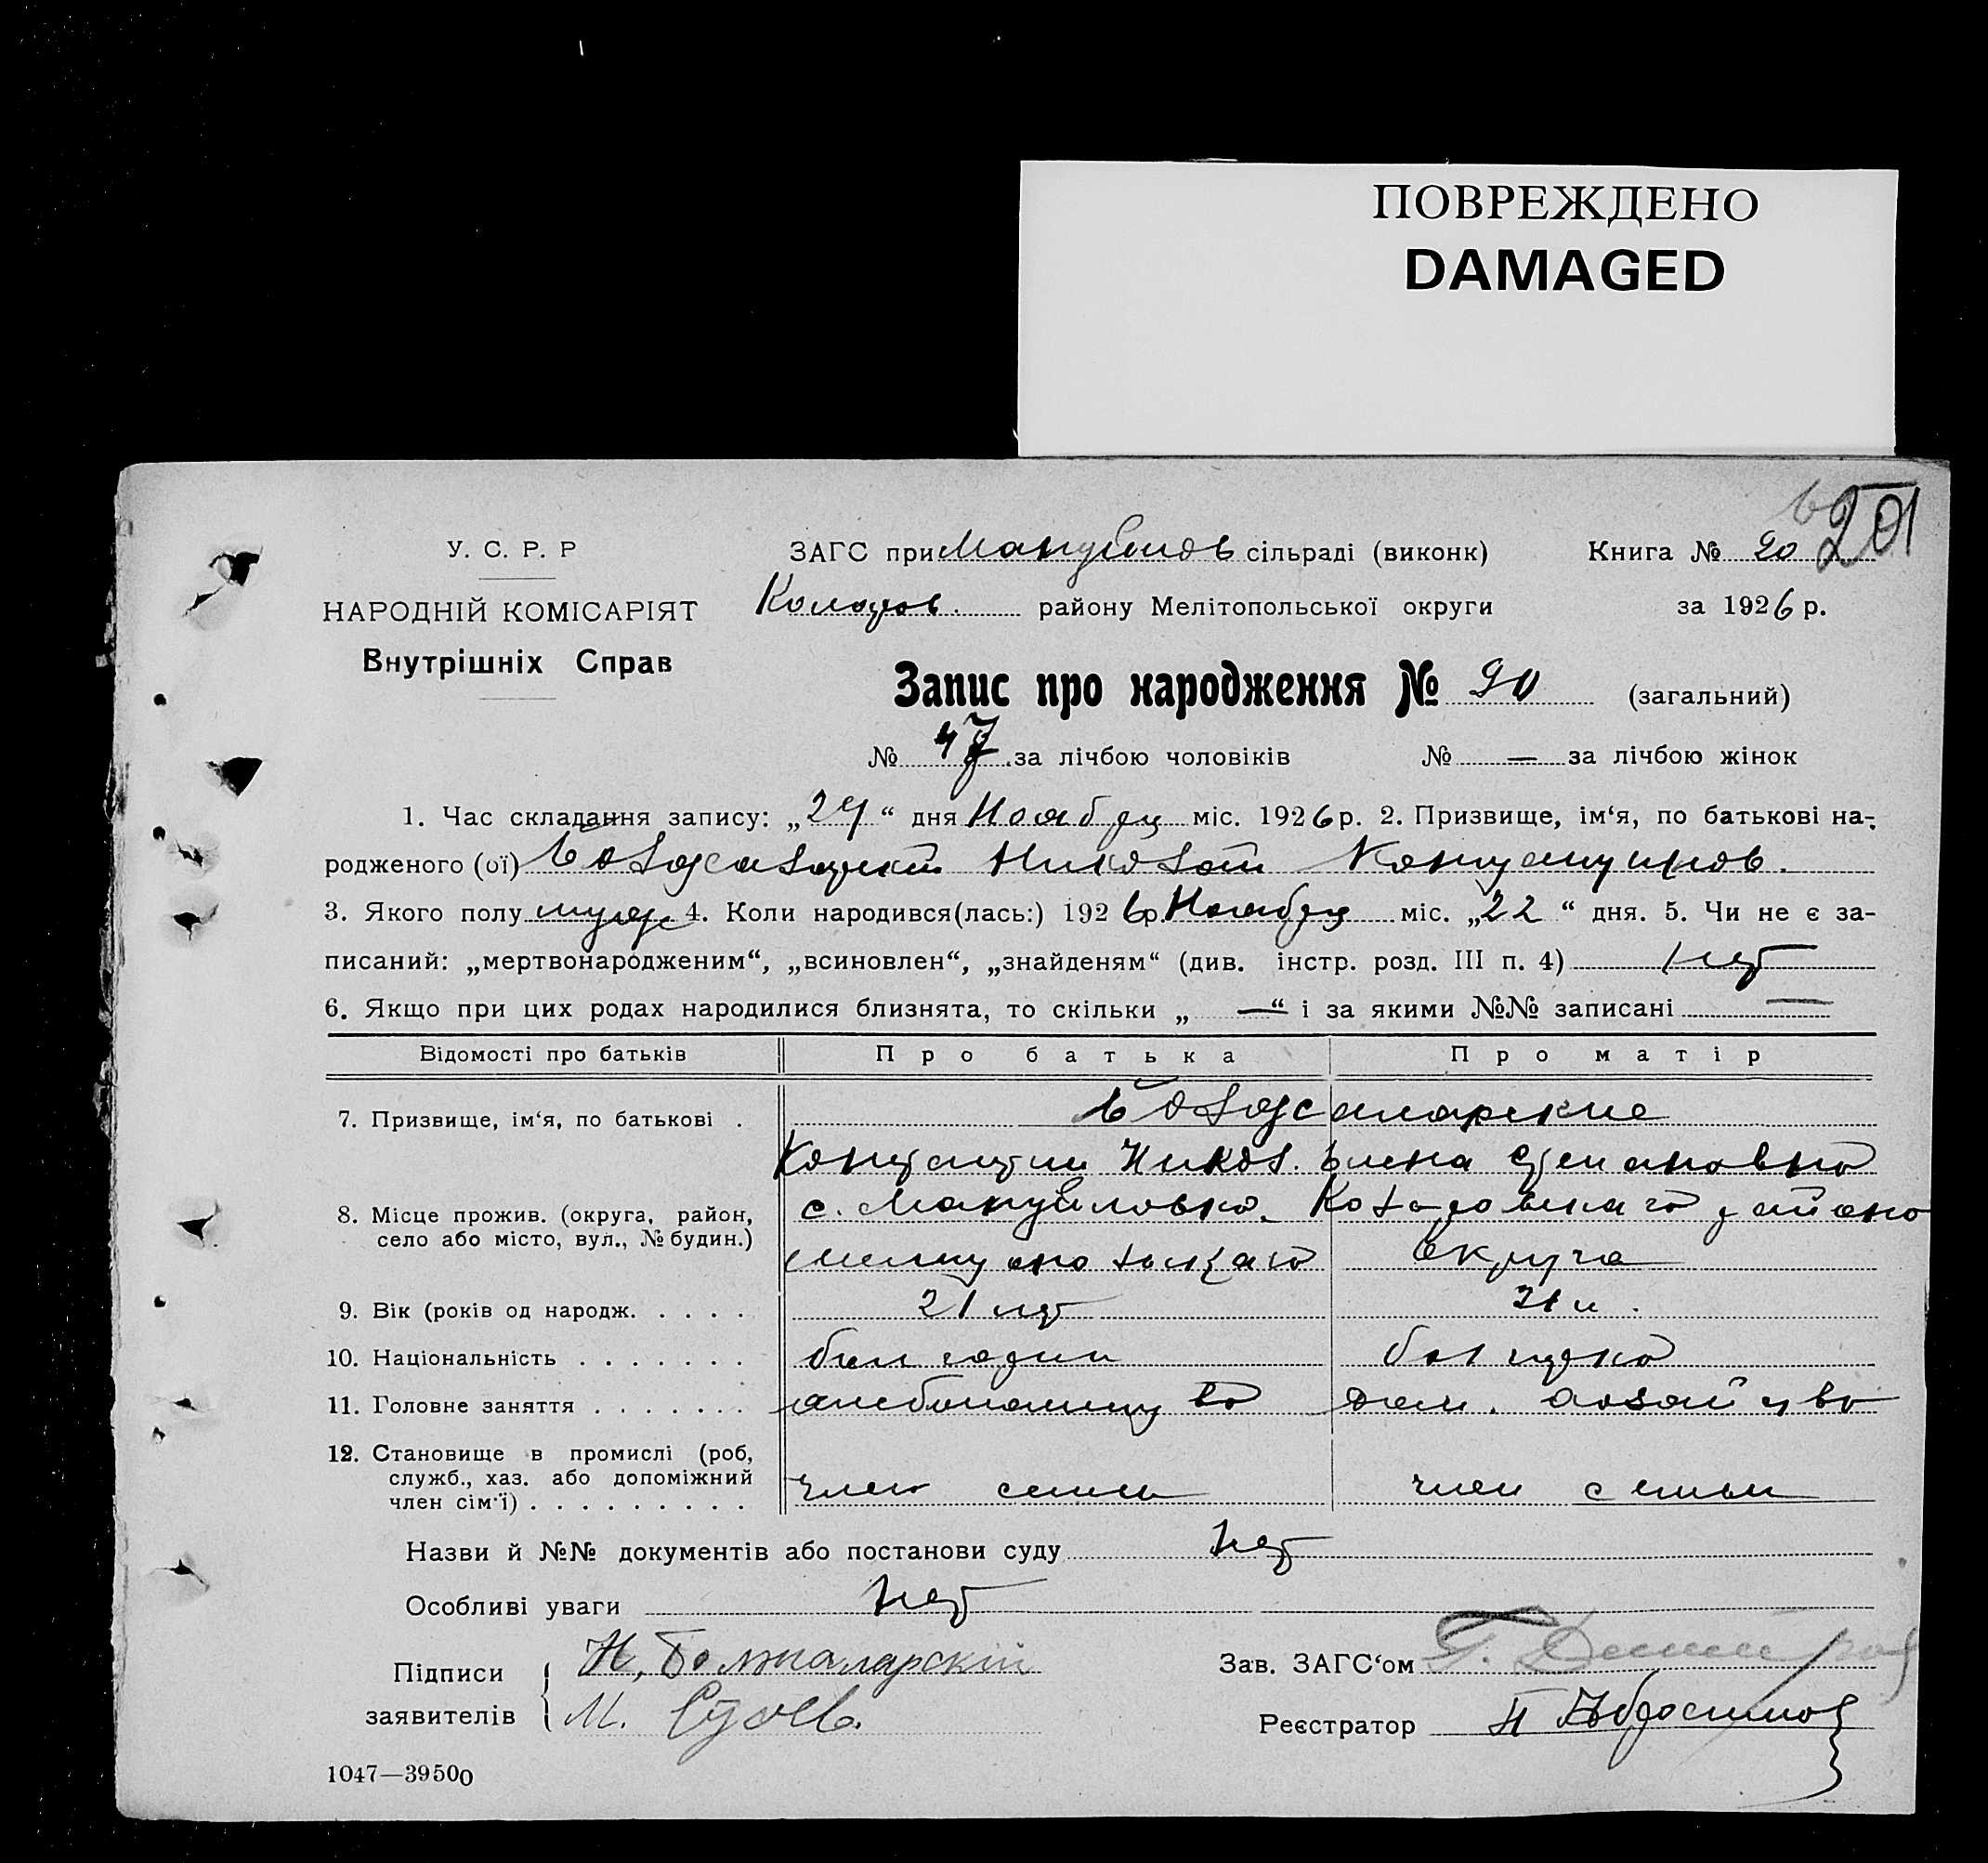 ПОВРЕЖДЕНО
DAMAGED
201
У. С. Р. Р
ЗАГС при Мануйлов сільраді (виконк)
Книга № 20
НАРОДНІЙ КОМІСАРІЯТ
району Мелітопольської округи
за 1926 р.
Внутрішніх Справ
Запис про народження № 90 (загальний)
№ 47 за лічбою чоловіків № — за лічбою жінок
1. Час складання запису: „24“ дня Ноября міс. 1926 р. 2. Призвище, ім‘я, по батькові на-
родженого (ої) Николай Константинов.
3. Якого полу муж 4. Коли народився(лась:) 1926 р. Ноября міс. „22“ дня. 5. Чи не є за-
писаний: „мертвонародженим“, „всиновлен“, „знайденям“ (див. інстр. розд. III п. 4) нет
6. Якщо при цих родах народилися близнята, то скільки „—“ і за якими №№ записані —
Відомості про батьків Про батька Про матір
7. Призвище, ім‘я, по батькові . Болжаларские
Константин Никол. Елена Степановна
8. Місце прожив. (округа, район, с. Мануйловка. района
село або місто, вул., № будин.) Мелитопольскаго округа
9. Вік (років од народж. . . . . 21 лет 21 л.
10. Національність . . . . . . . болгарин болгарка
11. Головне заняття . . . . . . . хлебопашество дом. хозайство
12. Становище в промислі (роб,
служб., хаз. або допоміжний
член сім‘ї) . . . . . . . . . член семьи член семьи
Назви й №№ документів або постанови суду нет
Особливі уваги нет
Підписи Н. Болжаларский Зав. ЗАГС‘ом
заявителів М. Реєстратор
1047—39500